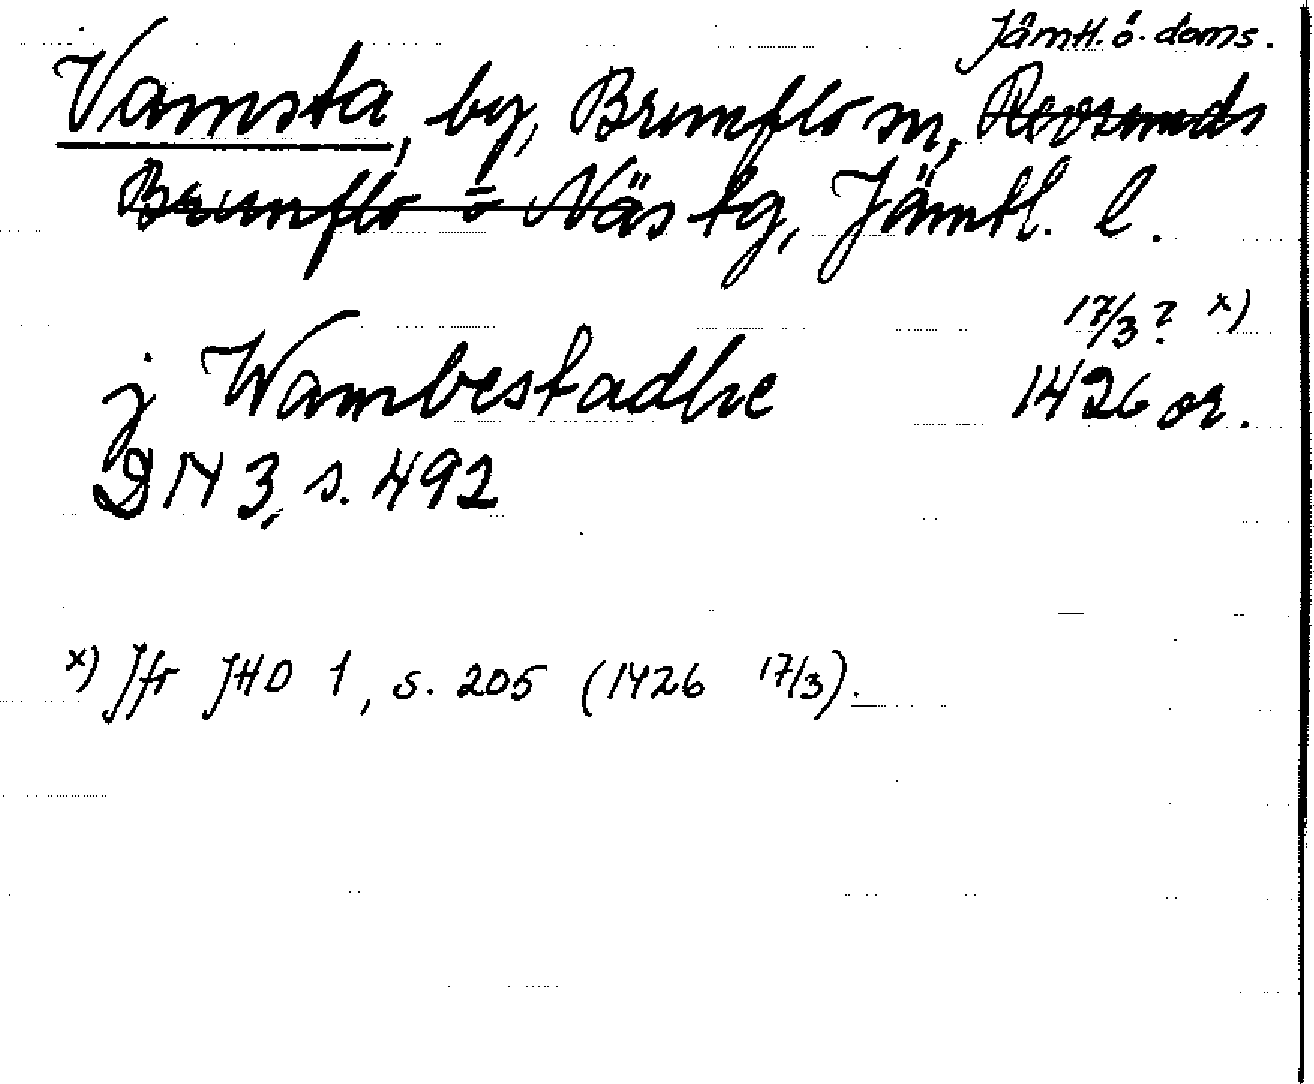 Jämtl. ö. doms.
Vamsta, by, Brunflo sn, Revsunds
Brunflo o Näs tg, Jämtl. l.
17/3? x)
j Wambestadhe 1426 or.
DN 3, s. 492
x) Jfr JHD 1, s. 205 (1426 17/3).